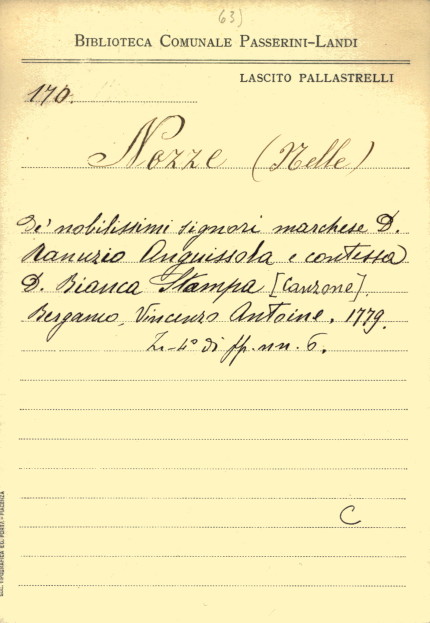 (63)
BIBLIOTECA COMUNALE PASSERINI-LANDI
LASCITO PALLASTRELLI
170.
Nozze (Nelle)
de' nobilissimi signori marchese D.
Ranuzio Anguissola e contessa
D. Bianca Stampa [Canzone].
Bergamo, Vincenzo Antoine, 1779.
In-4° di ff. nn. 6.
C
TIPOGRAFICA ED. PORTA - PIACENZA